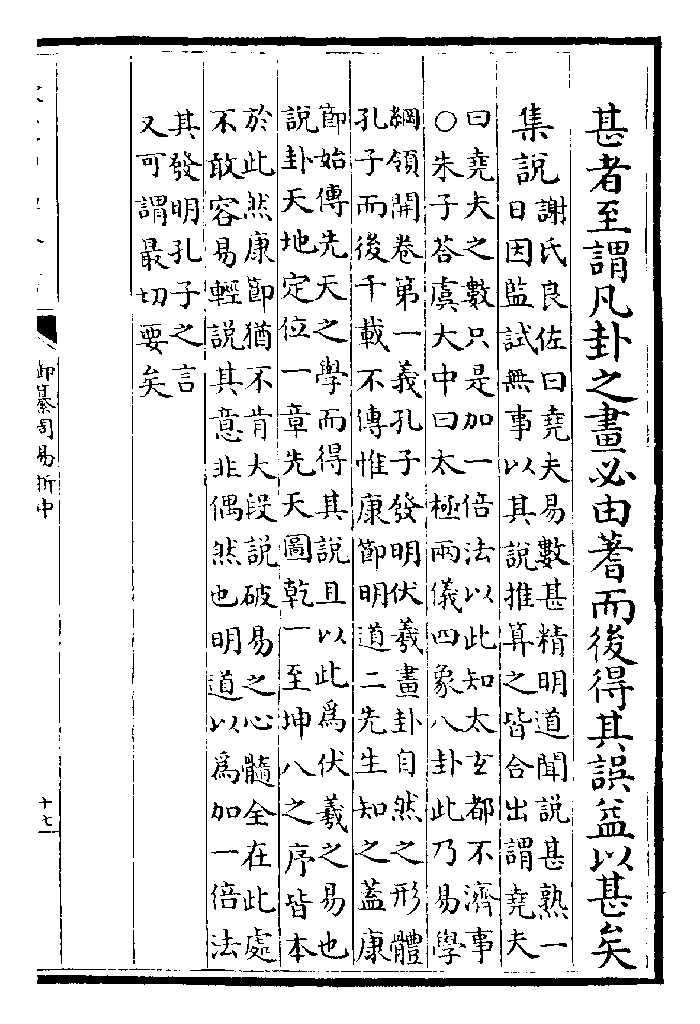 甚者至謂凡卦之畫必由蓍而後得其誤益以甚矣
集說謝氏良佐曰堯夫易數甚精明道聞說甚熟一
日因監試無事以其說推算之皆合出謂堯夫
曰堯夫之數只是加一倍法以此知太𤣥都不濟事
○朱子荅虞大中曰太極兩儀四象八卦此乃易學
綱領開卷第一義孔子發明伏羲畫卦自然之形體
孔子而後千載不傳惟康節明道二先生知之蓋康
節始傳先天之學而得其說且以此為伏羲之易也
說卦天地定位一章先天圖乾一至坤八之序皆本
於此然康節猶不肯大段說破易之心髓全在此處
不敢容易輕說其意非偶然也明道以為加一倍法
其發明孔子之言
又可謂最切要矣
御纂周易折中
十七